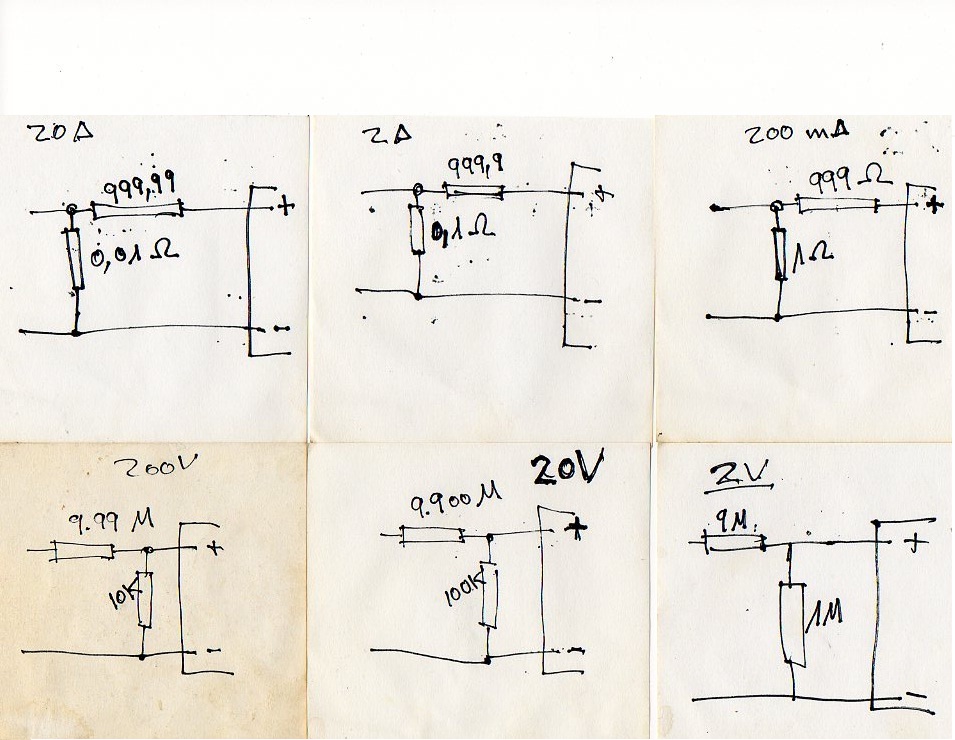 20A
999,99
+
0,01Ω
-
2A
999,9
+
0,1Ω
-
200 mA
999 Ω
+
1Ω
-
200V
9.99 M
+
10K
-
20V
9.900M
+
100K
-
2V
9M
+
1M
-